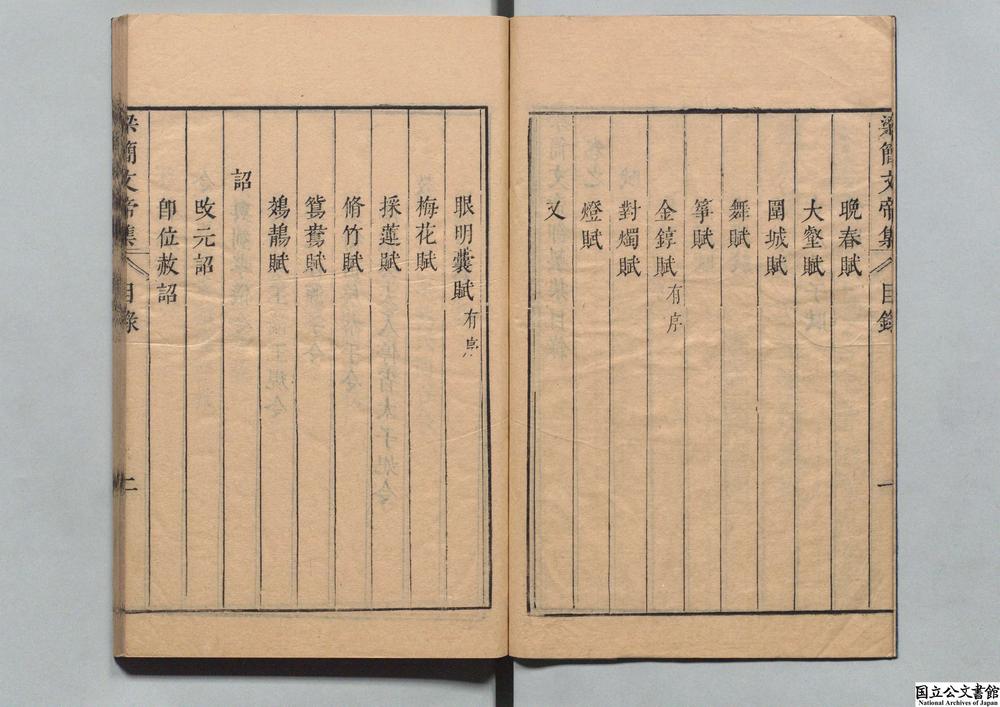 梁簡文帝集
目錄
一
晩春賦
大壑賦
圍城賦
舞賦
筝賦
金錞賦有序
對燭賦
燈賦
又
眼明囊賦有序
梅花賦
採蓮賦
脩竹賦
鴛鴦賦
鵁鶄賦
詔
改元詔
卽位赦詔
梁簡文帝集
目錄
二
国立公文書館
National Archives of Japan